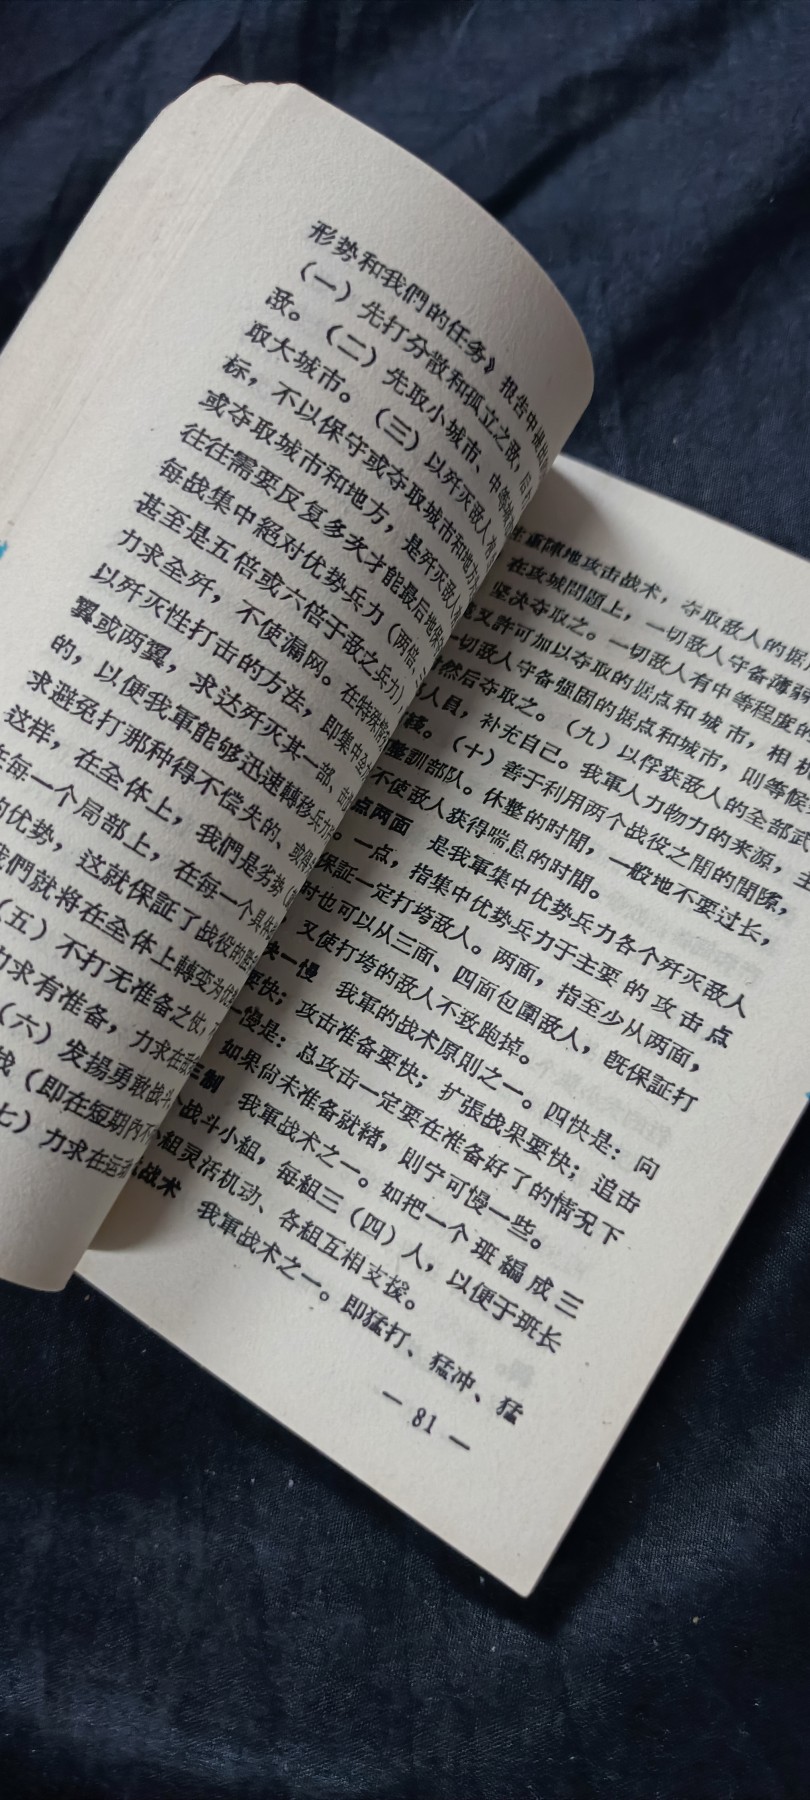 形势和我們的任务》报告中提出
（一）先打分散和孤立之敌，后
敌。（二）先取小城市、中等城
取大城市。（三）以歼灭敌人有
标，不以保守或夺取城市和地方
或夺取城市和地方，是歼灭敌人
往往需要反复多次才能最后地保
每战集中絕对优势兵力（两倍、
甚至是五倍或六倍于敌之兵力）
力求全歼，不使漏网。在特殊情
以歼灭性打击的方法，即集中
翼或两翼，求达歼灭其一部、
的，以便我軍能够迅速轉移兵力
求避免打那种得不偿失的、或得
这样，在全体上，我們是劣势
在每一个局部上，在每一个具体
的优势，这就保証了战役的
我們就将在全体上轉变为
（五）不打无准备之仗，
力求有准备，力求在
（六）发揚勇敢战斗
战（即在短期内不
七）力求在运
重陣地攻击战术，夺取敌人的据
在攻城問題上，一切敌人守备薄弱
坚决夺取之。一切敌人有中等程度的
又許可加以夺取的据点和城市，相机
一切敌人守备强固的据点和城市，则等候
然后夺取之。（九）以俘获敌人的全部武
人員，补充自己。我軍人力物力的来源，主
（十）善于利用两个战役之間的間隙，
整訓部队。休整的时間，一般地不要过长，
不使敌人获得喘息的时間。
点两面　是我軍集中优势兵力各个歼灭敌人
一点，指集中优势兵力于主要的攻击点
保証一定打垮敌人。两面，指至少从两面，
时也可以从三面、四面包圍敌人，旣保証打
又使打垮的敌人不致跑掉。
快一慢　我軍的战术原則之一。四快是：向
要快；攻击准备要快；扩張战果要快；追击
一慢是：总攻击一定要在准备好了的情况下
如果尙未准备就緒，則宁可慢一些。
三制　我軍战术之一。如把一个班編成三
战斗小組，每組三（四）人，以便于班长
組灵活机动、各組互相支援。
战术　我軍战术之一。即猛打、猛冲、猛
— 81 —